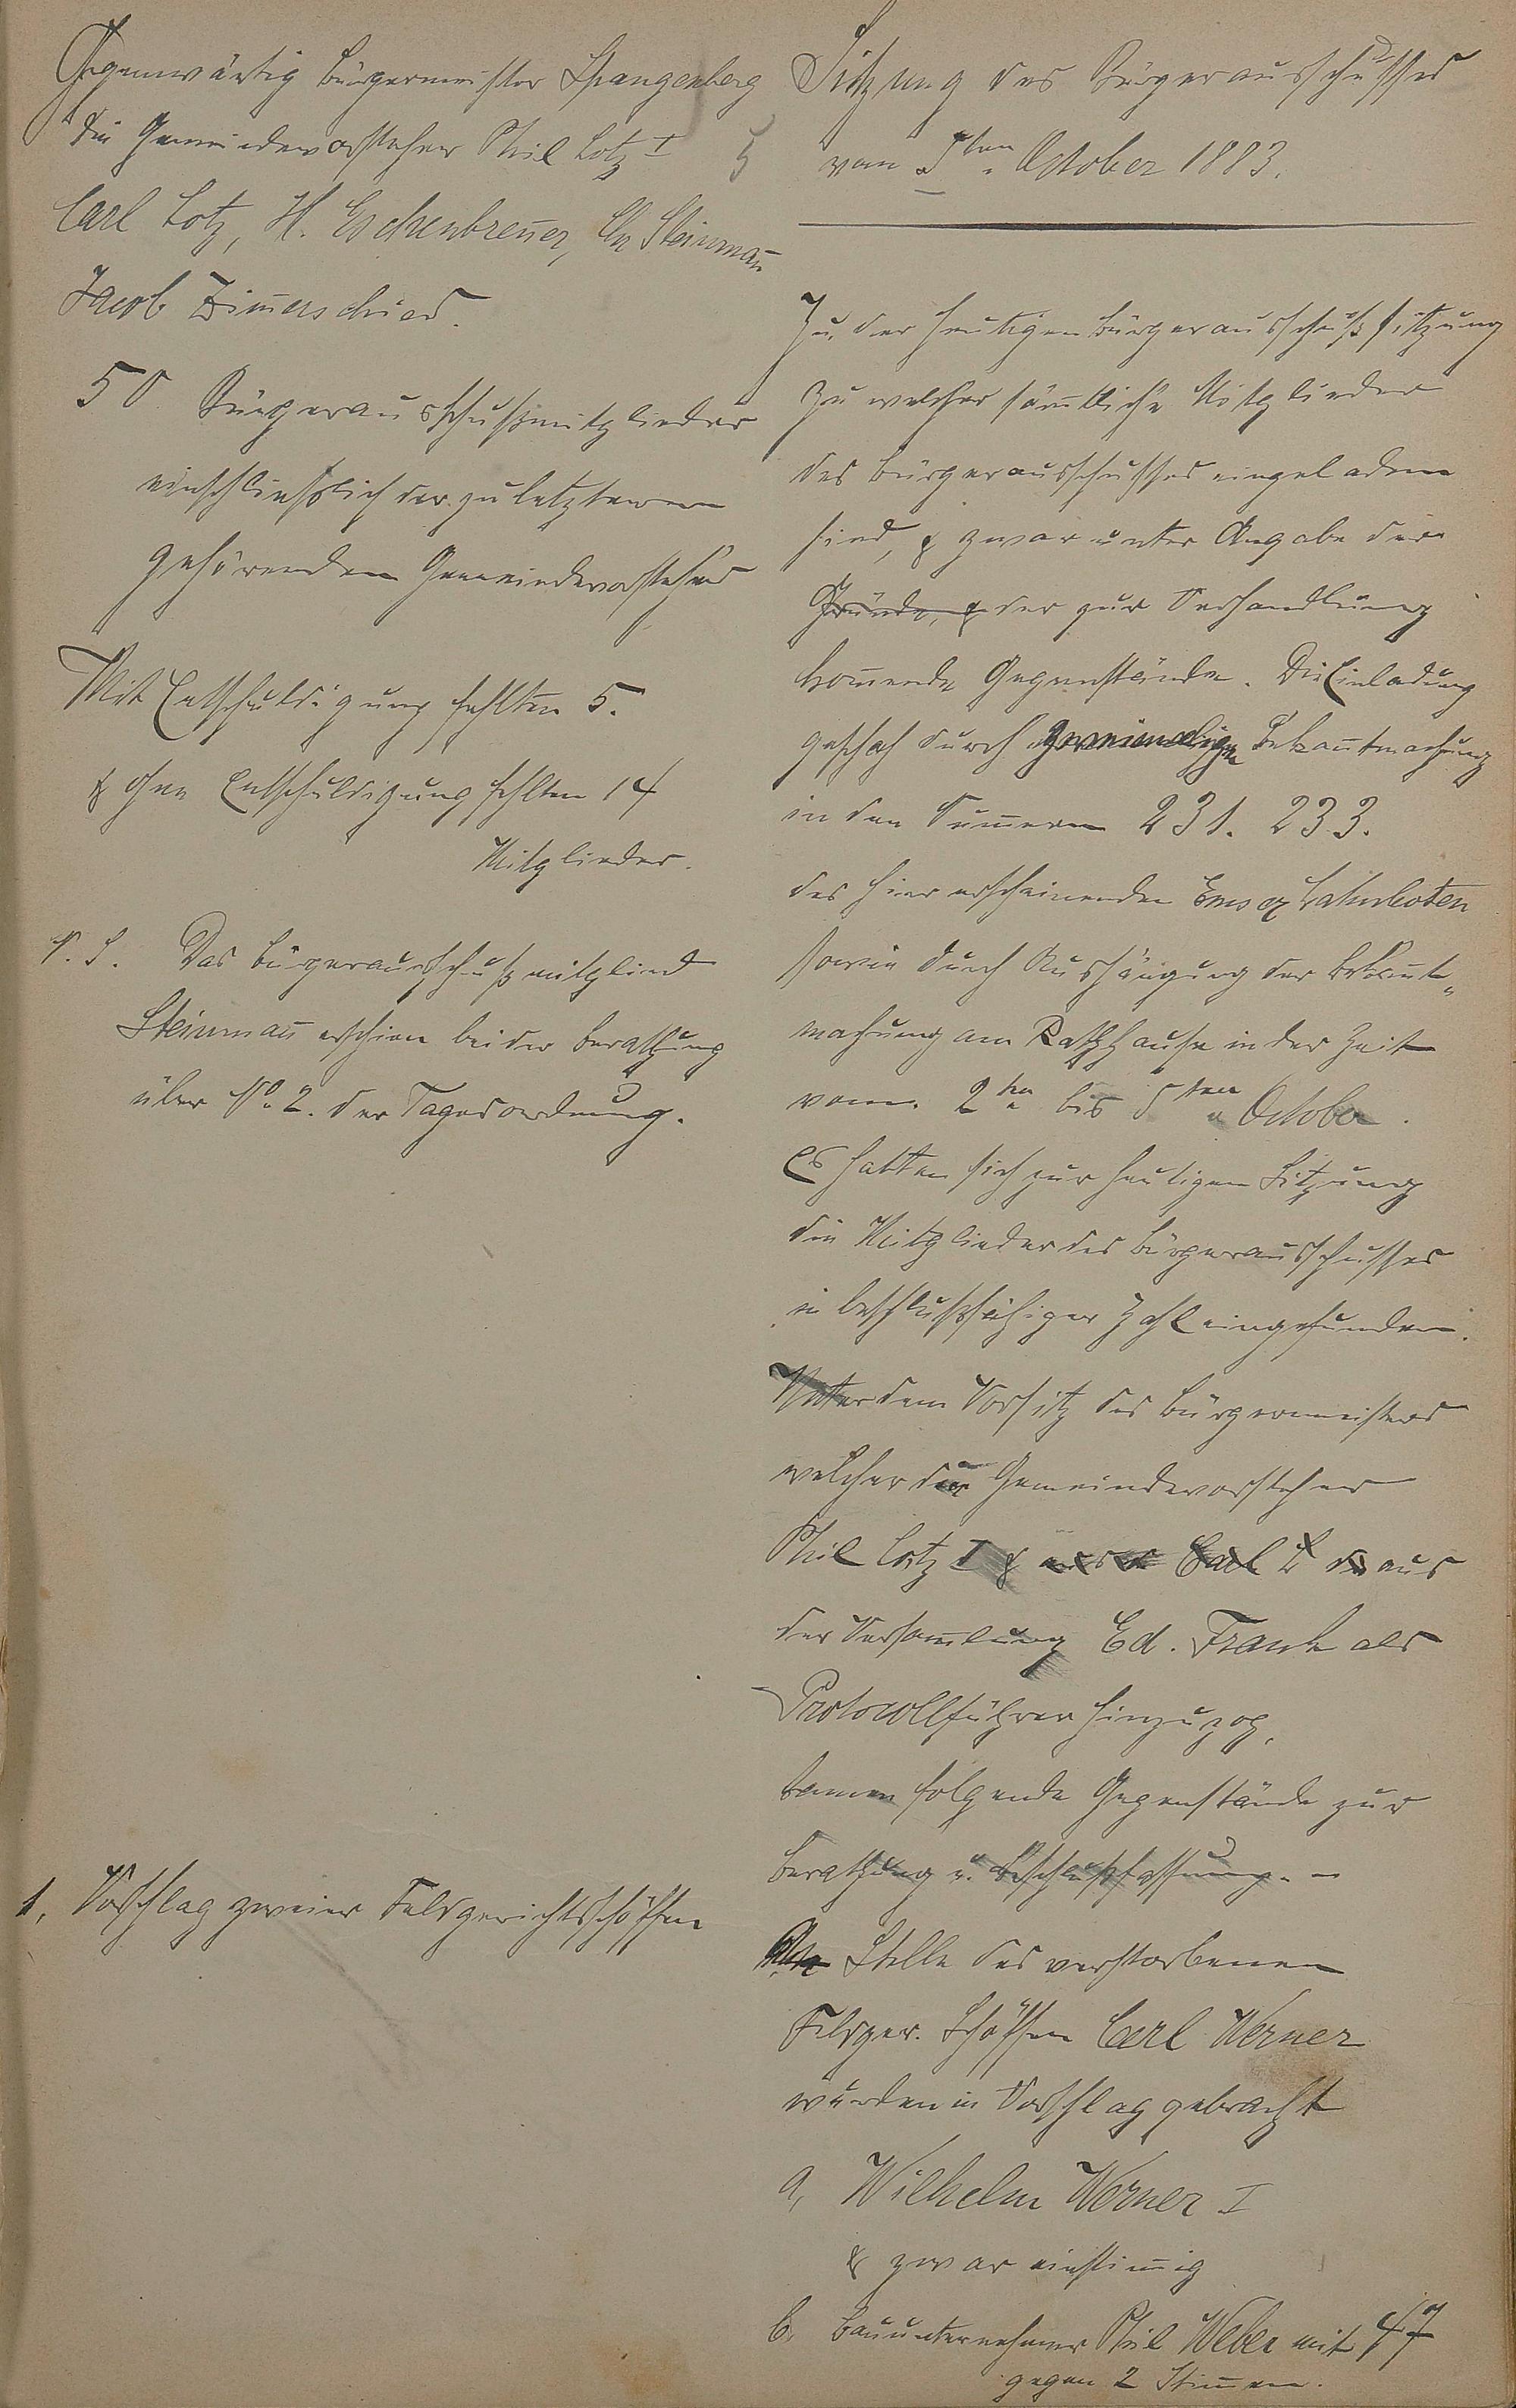 Gegenwärtig Bürgermeister Spangenberg
die Gemeindevorsteher Phil Lotz I
Carl Lotz, H. Eschenbrener, Chr Steinman̄
Jacob Zim̄erschied.
50 Bürgerausschußmitglieder
einschließlich der zu letzteren
gehörenden Gemeindevorsteher
Mit Entschuldigung fehlten 5.
& ohne Entschuldigung fehlten 14
Mitglieder.
N. S. Das Bürgerausschußmitglied
Steinman̄ erschien bei der Berathung
über No. 2. der Tagesordnung.
1, Vorschlag zweier Feldgerichtsschöffen
Sitzung des Bürgerausschußes
vom 5ten October 1883.
Zu der heutigen Bürgerausschuß sitzung
zu welcher säm̄tliche Mitglieder
des Bürgerausschusses eingeladen
sind, & zwar unter Angabe der
Gründe, & der zur Verhandlung
kom̄ende Gegenstände. Die Einladung
geschah durch zweimalige Bekan̄tmachung
in den Num̄ern 231. 233.
des hier erscheinenden Emser Lahnboten
sowie durch Aushängung der Bekan̄t-
machung am Rathhause in der Zeit
vom 2ten bis 5ten October.
Es hatten sich zur heutigen Sitzung
die Mitglieder des Bürgerausschusses
in beschlußfähiger Zahl eingefunden.
Unter dem Vorsitz des Bürgermeisters
welcher den Gemeindevorsteher
Phil Lotz I & aus
der Versam̄lung Ed. Frank als
Protocollführer hinzuzog,
kamen folgende Gegenstände zur
Berathung u. Beschlußfassung. -
An Stelle des verstorbenen
Feldger. Schöffen Carl Werner
wurden in Vorschlag gebracht
a, Wilhelm Werner I
& zwar einstim̄ig
b. Bauunternehmer Phil Weber mit 47
gegen 2 Stim̄en.